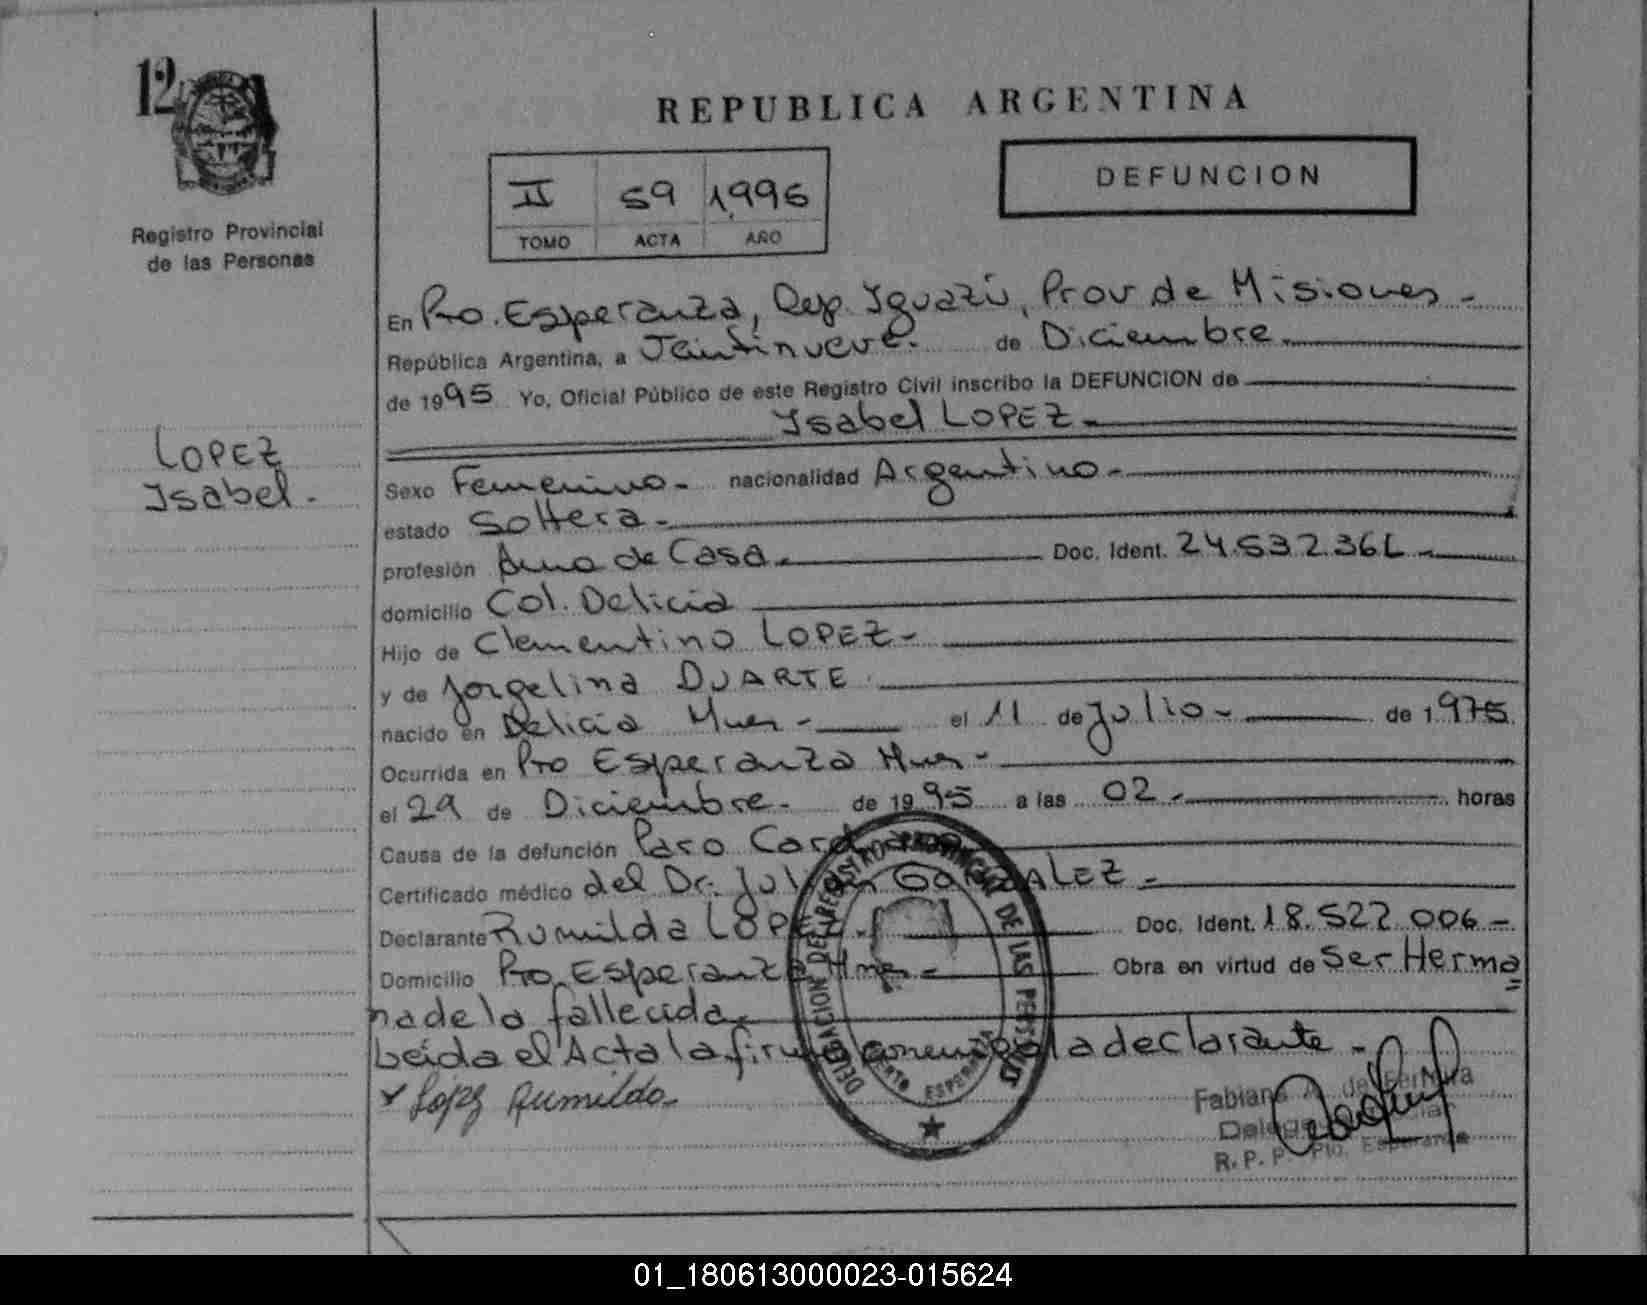 12
REPUBLICA ARGENTINA
DEFUNCION
II 59 1,995
TOMO ACTA AÑO
Registro Provincial
de las Personas
LOPEZ
Isabel.-
En Pto. Esperanza, Dep. Iguazú, Prov de Misiones -
República Argentina, a Veintinueve. de Diciembre
de 1995 Yo, Oficial Público de este Registro Civil inscribo la DEFUNCION de
Isabel LOPEZ.
Sexo Femenino - nacionalidad Argentino -
estado Soltera -
profesión Ama de Casa. Doc. Ident. 24.532.36
domicilio Col. Delicia
Hijo de Clementino LOPEZ -
y de Jorgelina DUARTE
nacido en Delicia Mnes - el 11 de Julio - de 1975
Ocurrida en Pto Esperanza Mnes -
el 29 de Diciembre. de 1995 a las 02 - horas
Causa de la defunción Paro Cardiaco
Certificado médico del Dr. Julian GONZALEZ -
Declarante Romilda LOPEZ - Doc. Ident. 18.522.006 -
Domicilio Pto. Esperanza Mnes - Obra en virtud de Ser Herma
na de la fallecida.
Leida el Acta la firma conmigo la declarante -
López Rumilda
DELEGACION DEL REGISTRO PROVINCIAL DE LAS PERSONAS
PUERTO ESPERANZA
Fabiana de Ferreira
R. P. P. Pto. Esperanza
01_180613000023-015624